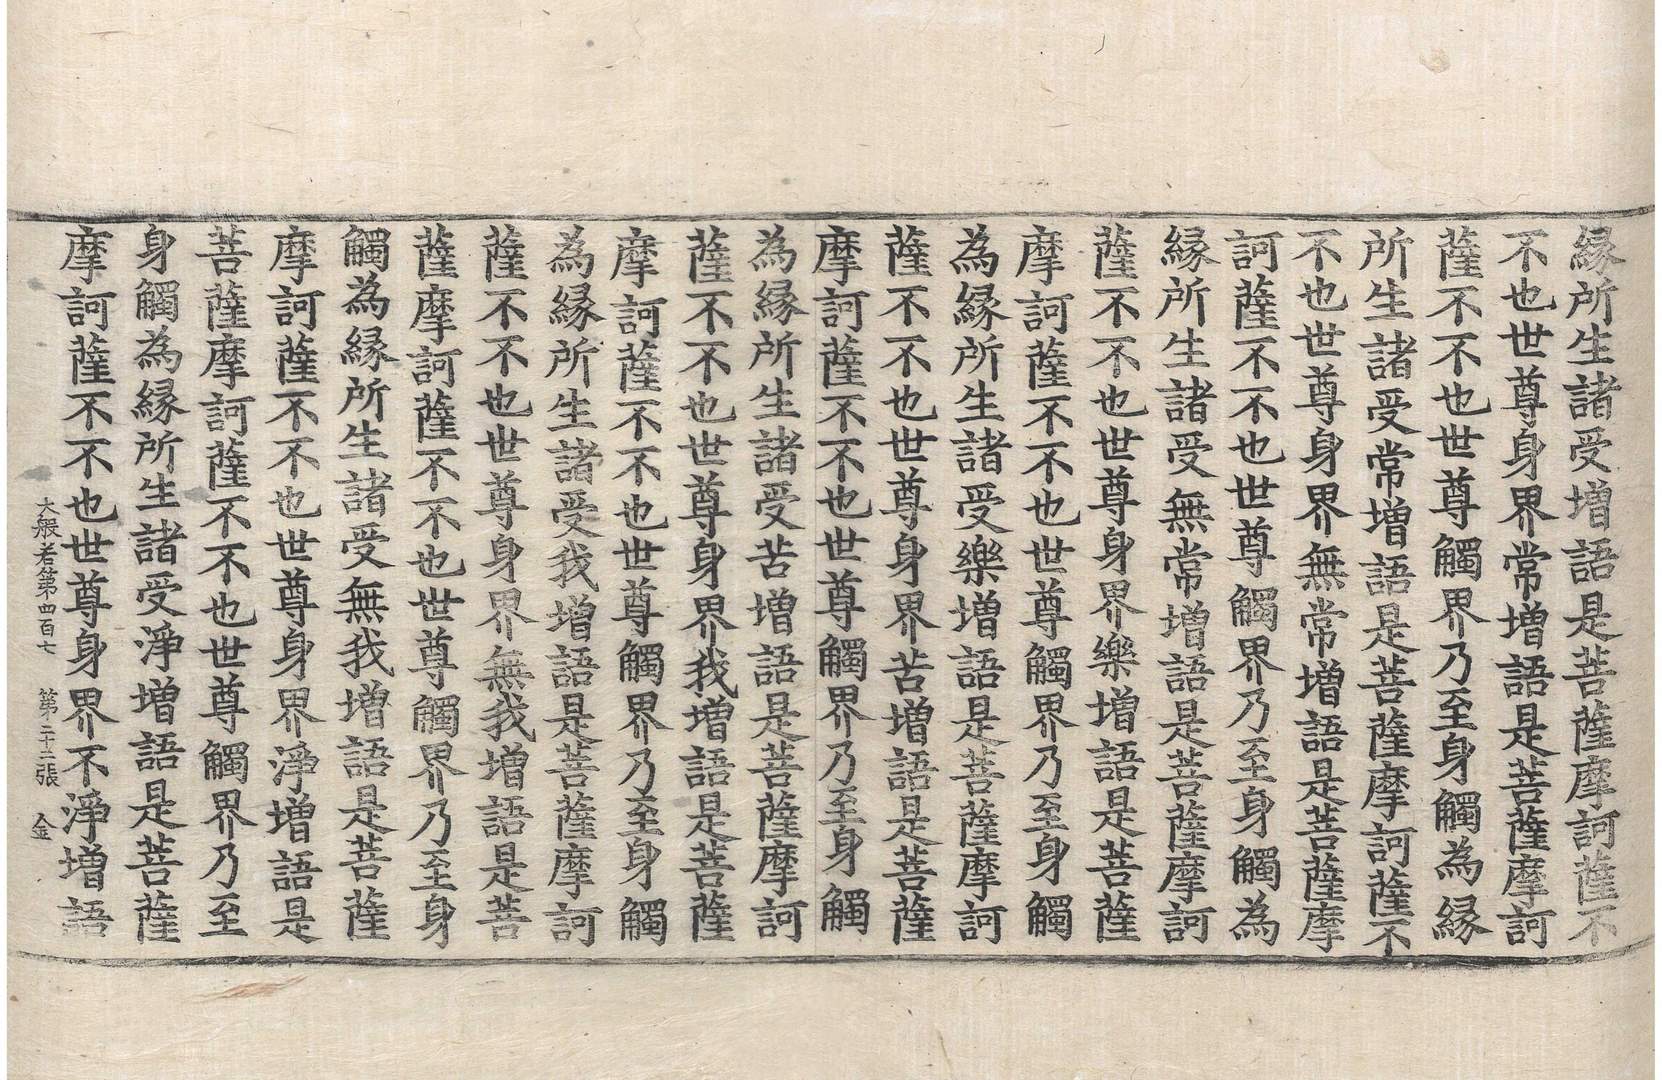 縁所生諸受増語是菩薩摩訶薩不
不也世尊身界常増語是菩薩摩訶
薩不不也世尊觸界乃至身觸為縁
所生諸受常増語是菩薩摩訶薩不
不也世尊身界無常増語是菩薩摩
訶薩不不也世尊觸界乃至身觸為
縁所生諸受無常増語是菩薩摩訶
薩不不也世尊身界樂増語是菩薩
摩訶薩不不也世尊觸界乃至身觸
為縁所生諸受樂増語是菩薩摩訶
薩不不也世尊身界苦増語是菩薩
摩訶薩不不也世尊觸界乃至身觸
為縁所生諸受苦増語是菩薩摩訶
薩不不也世尊身界我増語是菩薩
摩訶薩不不也世尊觸界乃至身觸
為縁所生諸受我増語是菩薩摩訶
薩不不也世尊身界無我増語是菩
薩摩訶薩不不也世尊觸界乃至身
觸為縁所生諸受無我増語是菩薩
摩訶薩不不也世尊身界淨増語是
菩薩摩訶薩不不也世尊觸界乃至
身觸為縁所生諸受淨増語是菩薩
摩訶薩不不也世尊身界不淨増語
大般若第四百七 第二十二張 金